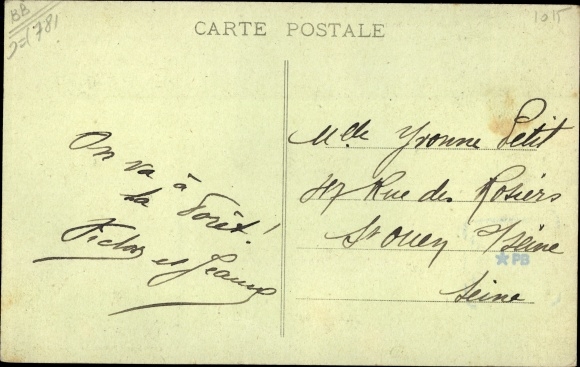 BB
D=1781
1015
CARTE POSTALE
On va à
la Forêt!
Victor et Jeanne
Mlle Yvonne Petit
47 Rue des Rosiers
St Ouen s/Seine
*PB
Seine